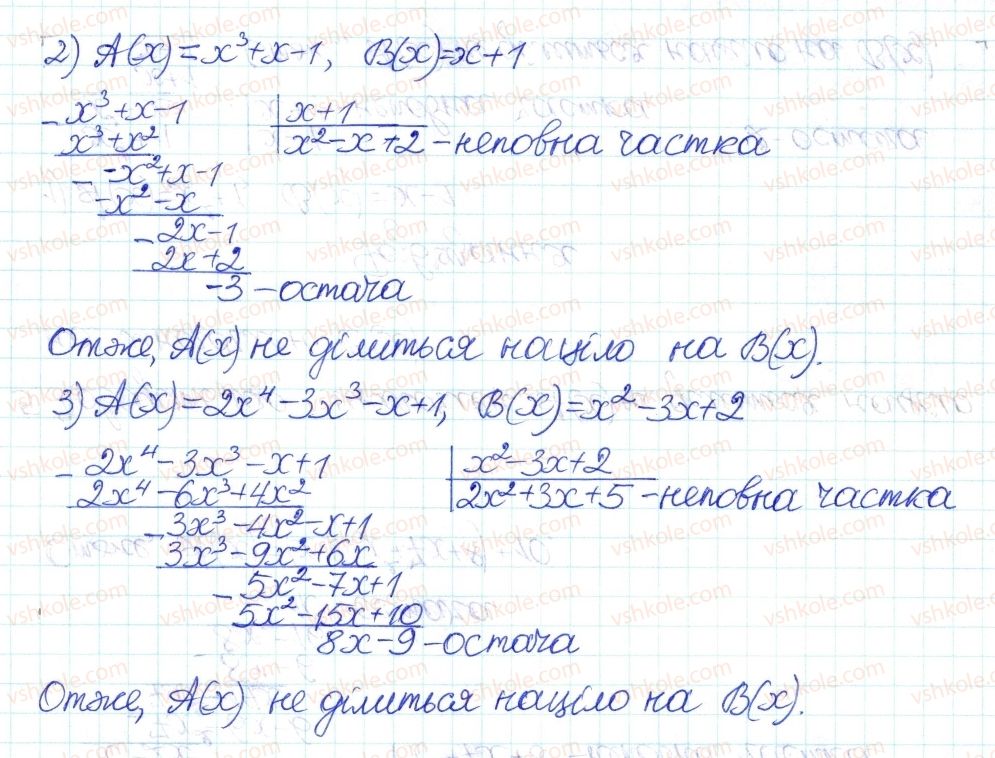 2) A(x)=x³+x-1, B(x)=x+1
x³+x-1 | x+1
x³+x² | x²-x+2 - неповна частка
-x²+x-1
-x²-x
2x-1
2x+2
-3 - остача
Отже, A(x) не ділиться націло на B(x).
3) A(x)=2x⁴-3x³-x+1, B(x)=x²-3x+2
2x⁴-3x³-x+1 | x²-3x+2
2x⁴-6x³+4x² | 2x²+3x+5 - неповна частка
3x³-4x²-x+1
3x³-9x²+6x
5x²-7x+1
5x²-15x+10
8x-9 - остача
Отже, A(x) не ділиться націло на B(x).
vshkole.com